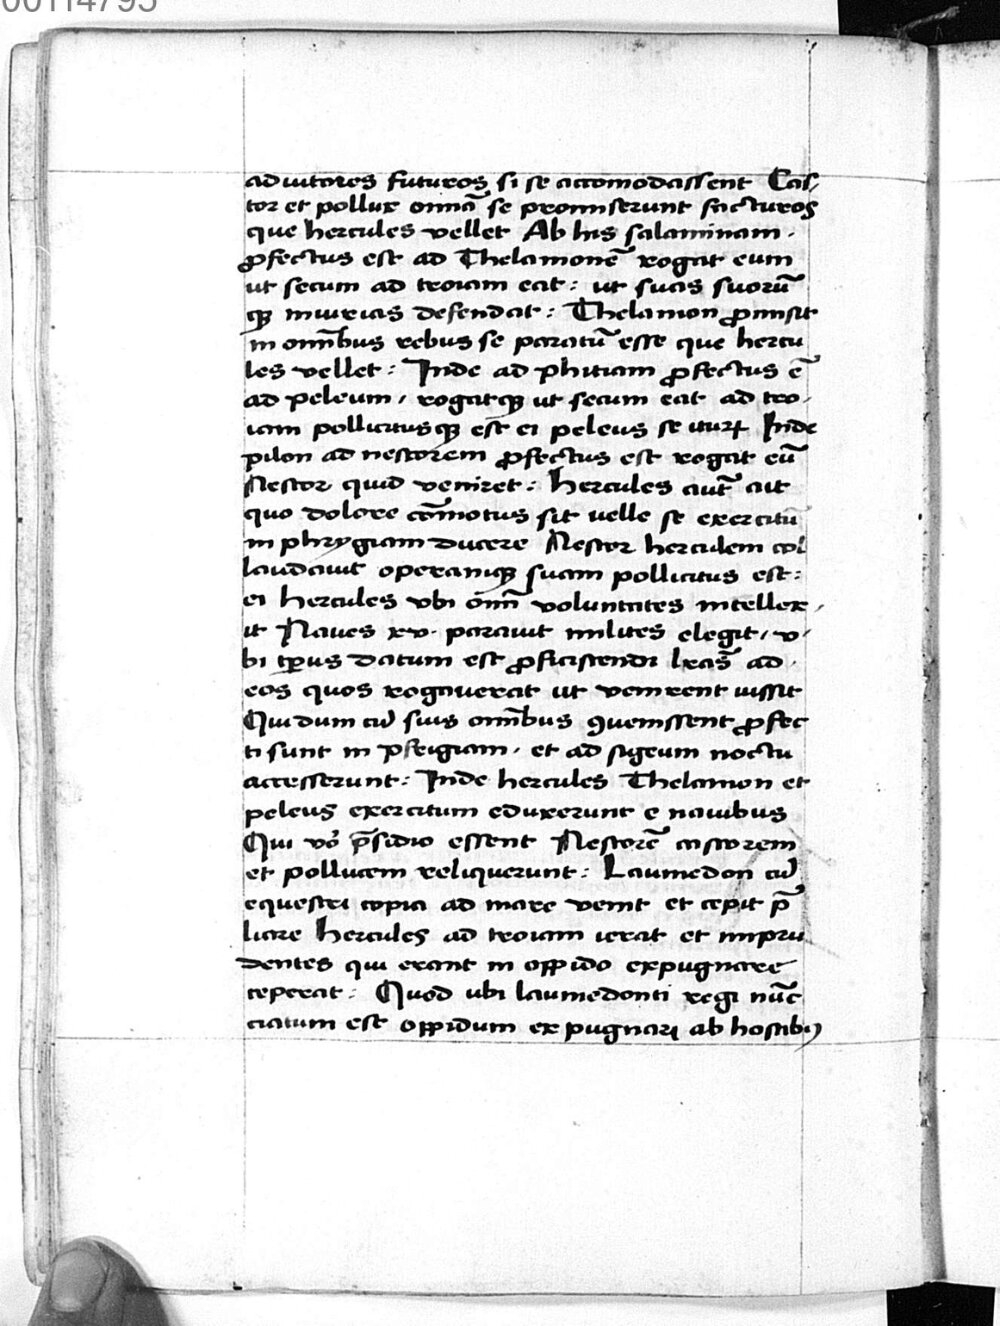 00114795
adiutores futuros si se accomodassent Cas/
tor et pollux om̄ia se promiserunt facturos
que hercules vellet Ab his salaminam ·
ꝓfectus est ad Thelamonē rogat eum
ut secum ad troiam eat : ut suas suorū
qꝫ iniurias defendat : Thelamon ꝓmisit
in om̄ibus rebus se paratū esse que hercu
les vellet : Inde ad phitiam ꝓfectus ē
ad peleum / rogatqꝫ ut secum eat ad tro /
iam pollicitusqꝫ est ei peleus se iturꝝ Inde
pilon ad nestorem ꝓfectus est rogat eū
Nestor quid veniret : hercules aut̄ ait
quo dolore com̄otus sit uelle se exercitū
in phrygiam ducere Nestor herculem col
laudauit operamqꝫ suam pollicitus est :
ei hercules vbi om̄ī voluntates intellex /
it Naues xv · parauit milites elegit / v /
bi tp̄us datum est ꝓficiscendi lr̄as ad ·
eos quos rogauerat ut venirent iussit
Qui dum cū suis om̄ibus ꝯuenissent ꝓfec
ti sunt in phrigiam · et ad sigeum noctu
accesserunt : Inde hercules Thelamon et
peleus exercitum eduxerunt e nauibus
Qui vo᷒ p̄sidio essent Nestorē castorem
et pollucem reliquerunt : Laumedon cū
equestri copia ad mare venit et cepit p̄
liare hercules ad troiam ierat et inpru
dentes qui erant in oppido expugnare
ceperat : Quod ubi laumedonti regi nūc
ciatum est oppidum expugnari ab hostibꝰ